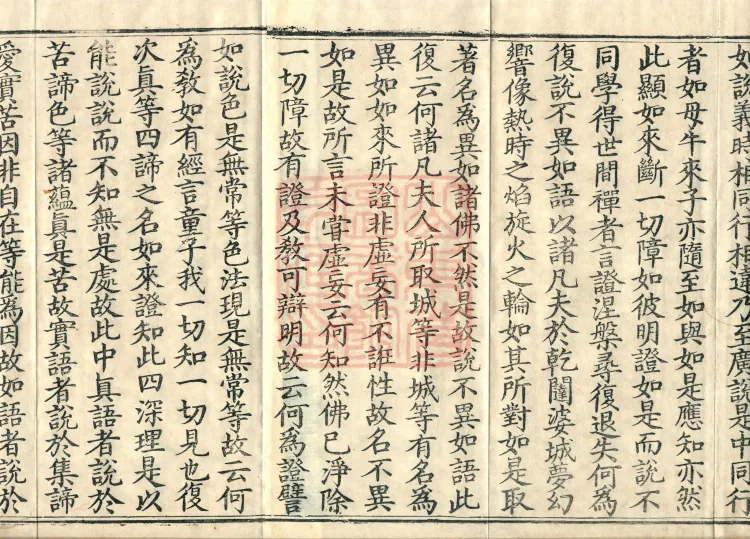 如說義時相同行相違乃至廣說是中同行
者如母牛來子亦隨至如與如是應知亦然
此顯如來斷一切障如彼明證如是而說不
同學得世間禪者言證涅槃尋復退失何為
復說不異如語以諸凡夫於乾闥婆城夢幻
響像熱時之焰旋火之輪如其所對如是取
著名為異如諸佛不然是故說不異如語此
復云何諸凡夫人所取城等非城等有名為
異如如來所證非虛妄有不誑性故名不異
如是故所言未嘗虛妄云何知然佛已淨除
一切障故有證及教可辯明故云何為證譬
如說色是無常等色法現是無常等故云何
為教如有經言童子我一切知一切見也復
次真等四諦之名如來證知此四深理是以
能說說而不知無是處故此中真語者說於
苦諦色等諸蘊真是苦故實語者說於集諦
愛實苦因非自在等能為因故如語者說於